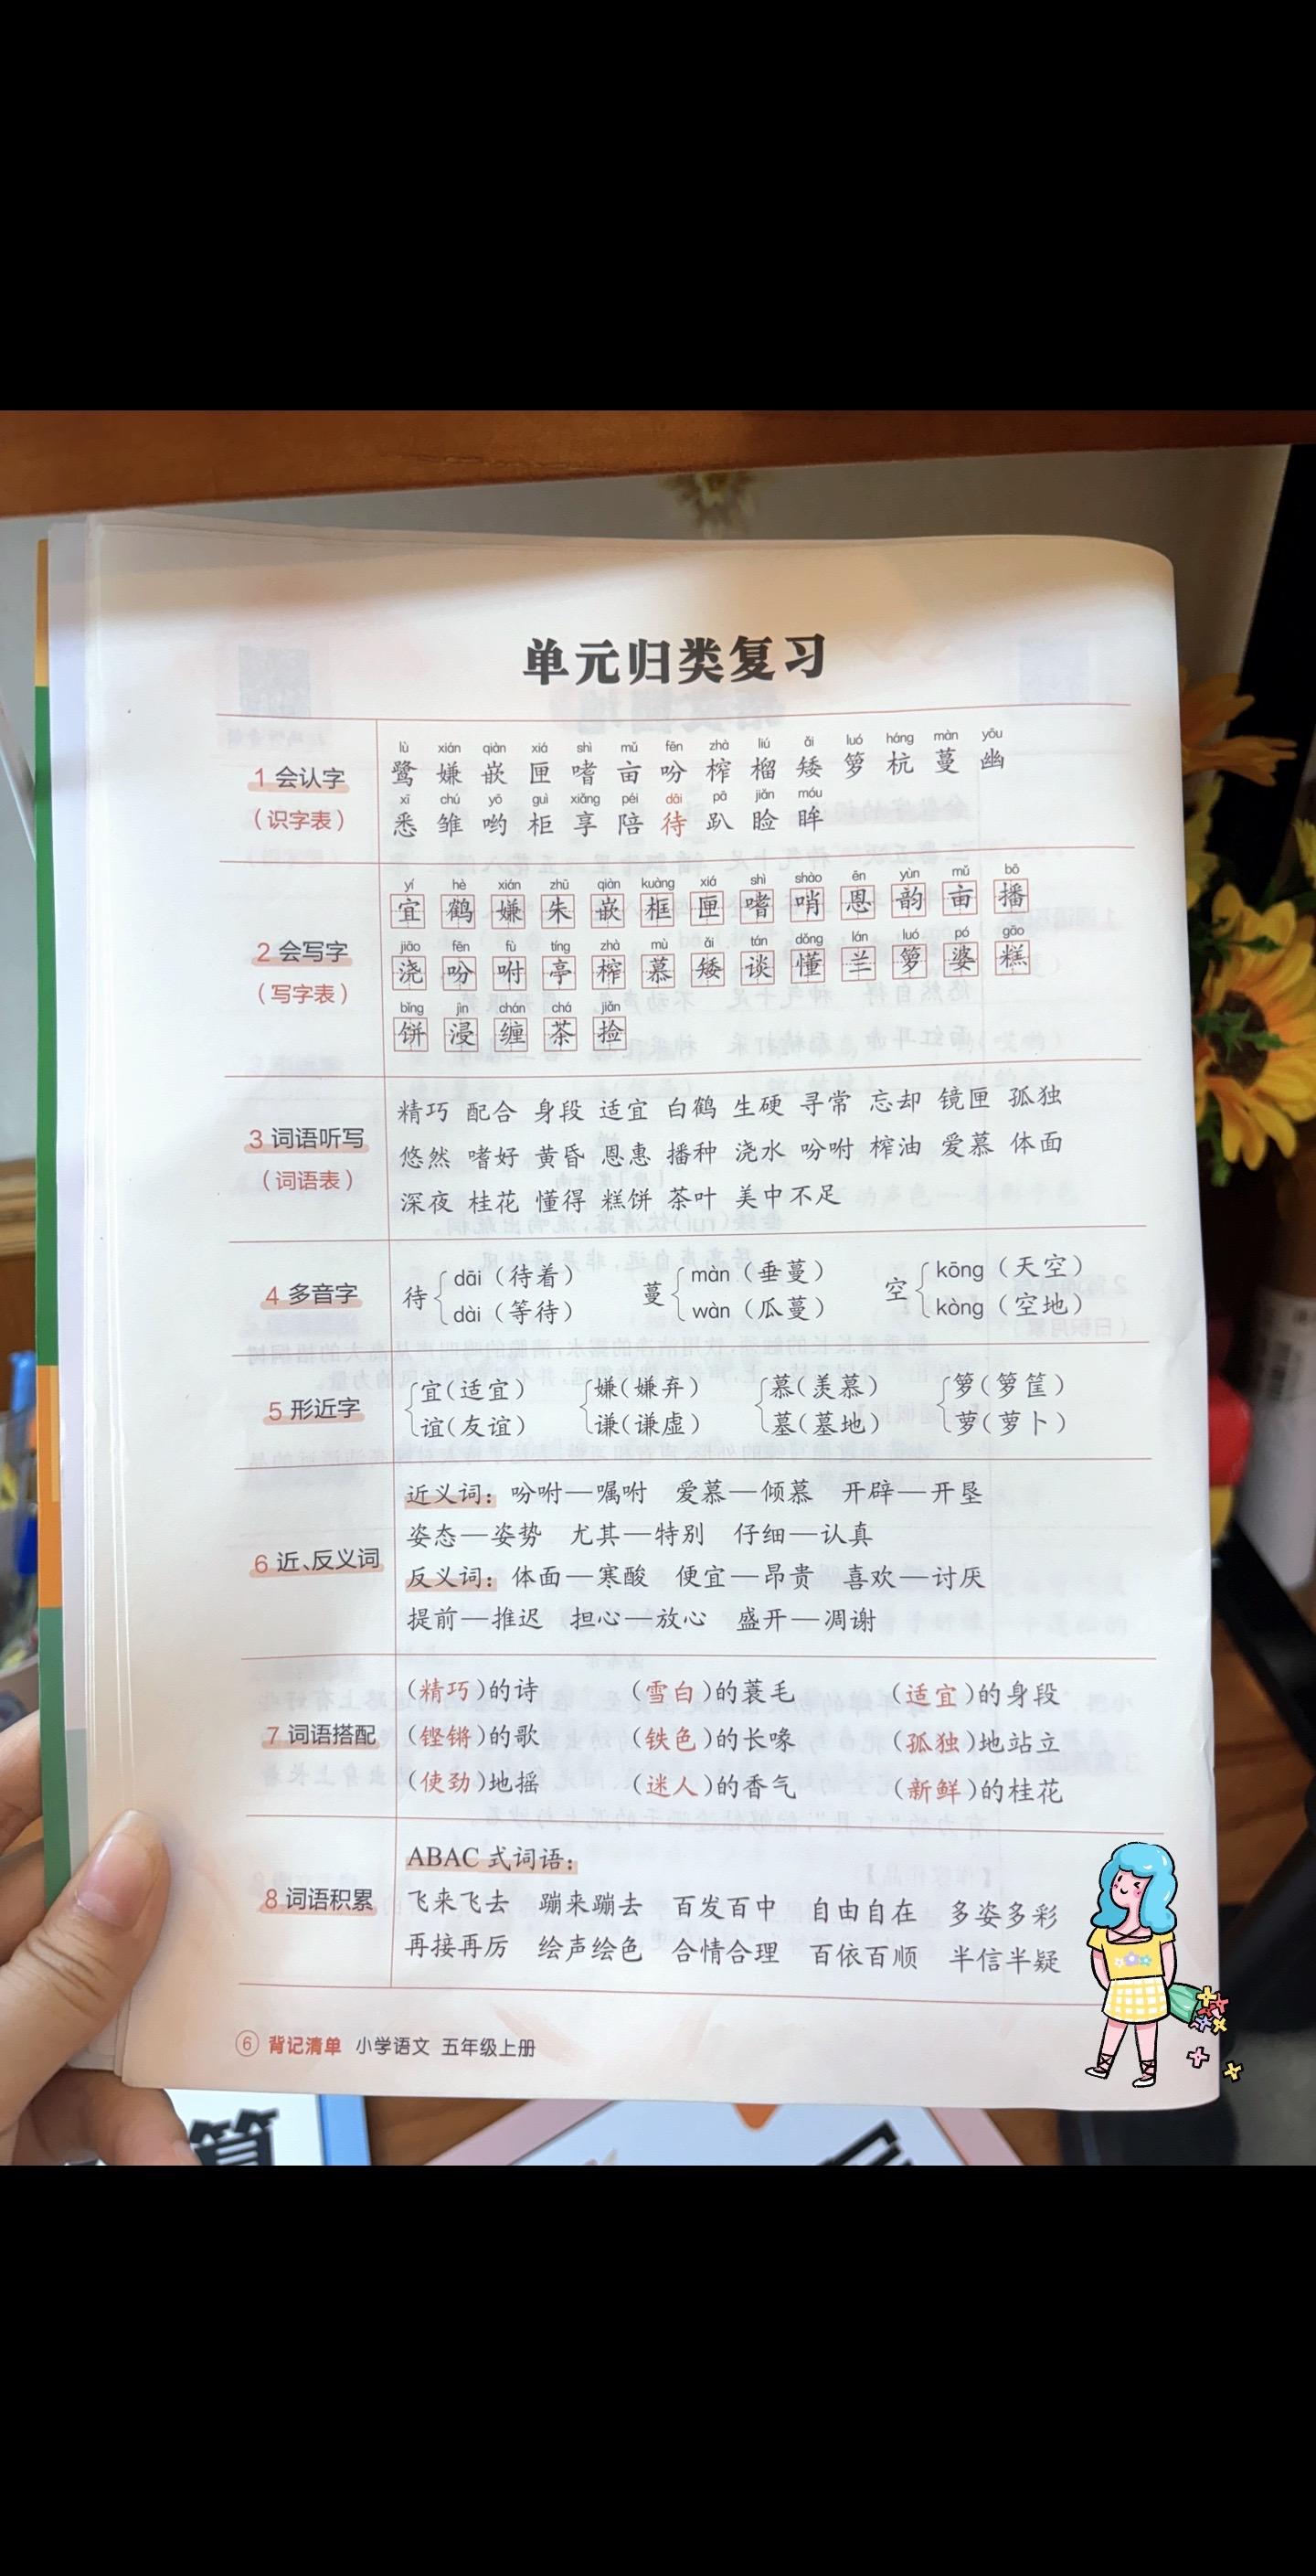 单元归类复习
1 会认字
（识字表）
lù xián qiàn xiá shì mǔ fēn zhà liú ǎi luó háng màn yōu
鹭 嫌 嵌 匣 嗜 亩 吩 榨 榴 矮 箩 杭 蔓 幽
xī chú yō guì xiǎng péi dāi pā jiǎn móu
悉 雏 哟 柜 享 陪 待 趴 睑 眸
2 会写字
（写字表）
yí hè xián zhū qiàn kuàng xiá shì shào ēn yùn mǔ bō
宜 鹤 嫌 朱 嵌 框 匣 嗜 哨 恩 韵 亩 播
jiāo fēn fù tíng zhà mù ǎi tán dǒng lán luó pó gāo
浇 吩 咐 亭 榨 慕 矮 谈 懂 兰 箩 婆 糕
bǐng jìn chán chá jiǎn
饼 浸 缠 茶 捡
3 词语听写
（词语表）
精巧 配合 身段 适宜 白鹤 生硬 寻常 忘却 镜匣 孤独
悠然 嗜好 黄昏 恩惠 播种 浇水 吩咐 榨油 爱慕 体面
深夜 桂花 懂得 糕饼 茶叶 美中不足
4 多音字
待 dāi（待着） dài（等待）
蔓 màn（垂蔓） wàn（瓜蔓）
空 kōng（天空） kòng（空地）
5 形近字
宜（适宜） 嫌（嫌弃） 慕（羡慕） 箩（箩筐）
谊（友谊） 谦（谦虚） 墓（墓地） 萝（萝卜）
6 近、反义词
近义词：吩咐—嘱咐 爱慕—倾慕 开辟—开垦
姿态—姿势 尤其—特别 仔细—认真
反义词：体面—寒酸 便宜—昂贵 喜欢—讨厌
提前—推迟 担心—放心 盛开—凋谢
7 词语搭配
（精巧）的诗 （雪白）的蓑毛 （适宜）的身段
（铿锵）的歌 （铁色）的长喙 （孤独）地站立
（使劲）地摇 （迷人）的香气 （新鲜）的桂花
8 词语积累
ABAC 式词语：
飞来飞去 蹦来蹦去 百发百中 自由自在 多姿多彩
再接再厉 绘声绘色 合情合理 百依百顺 半信半疑
6 背记清单 小学语文 五年级上册
算